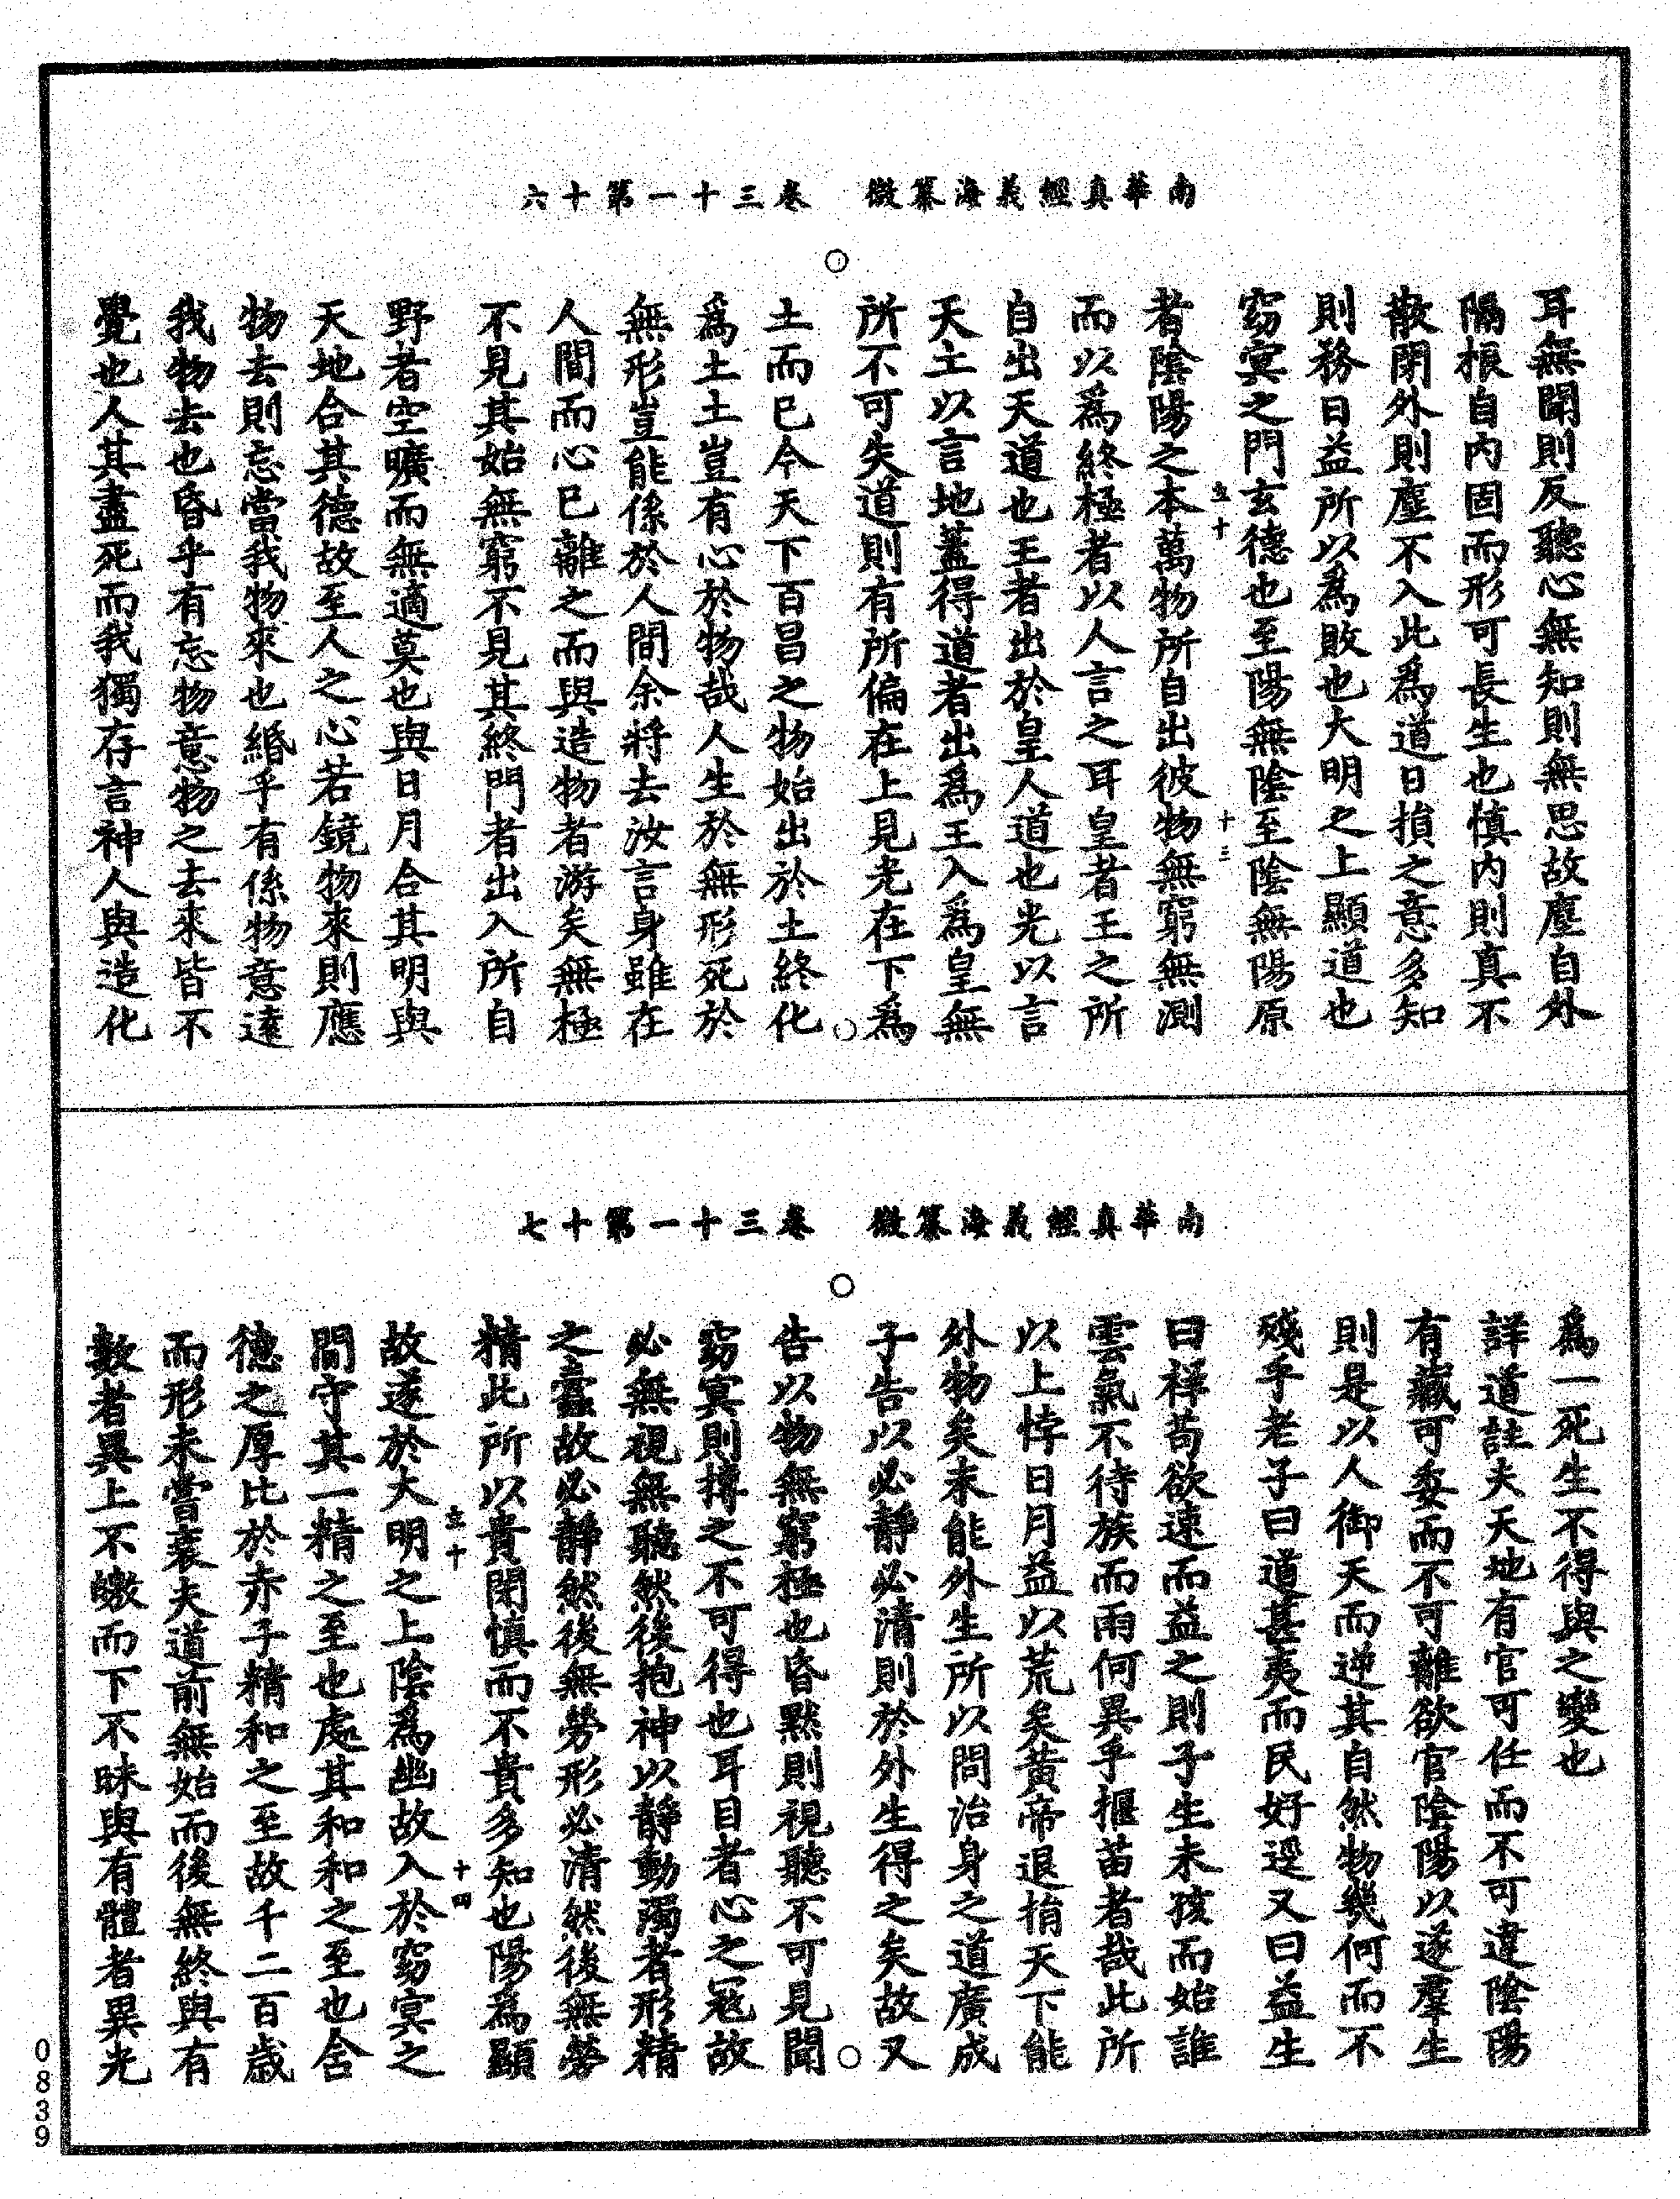 南華真經義海纂微　卷三十一第十六
耳無聞則反聽心無知則無思故塵自外
隔根自內固而形可長生也慎內則真不
散閉外則塵不入此爲道日損之意多知
則務日益所以爲敗也大明之上顯道也
窈冥之門玄德也至陽無陰至陰無陽原
者陰陽之本萬物所自出彼物無窮無測
立十　十三
而以爲終極者以人言之耳皇者王之所
自出天道也王者出於皇人道也光以言
天土以言地蓋得道者出爲王入爲皇無
所不可失道則有所偏在上見光在下爲
土而已今天下百昌之物始出於土終化
爲土土豈有心於物哉人生於無形死於
無形豈能係於人間余將去汝言身雖在
人間而心已離之而與造物者游矣無極
不見其始無窮不見其終門者出入所自
野者空曠而無適莫也與日月合其明與
天地合其德故至人之心若鏡物來則應
物去則忘當我物來也緡乎有係物意遠
我物去也昏乎有忘物意物之去來皆不
覺也人其盡死而我獨存言神人與造化
南華真經義海纂微　卷三十一第十七
爲一死生不得與之變也
詳道註夫天地有官可任而不可違陰陽
有藏可委而不可離欲官陰陽以遂羣生
則是以人御天而逆其自然物幾何而不
殘乎老子曰道甚夷而民好逕又曰益生
曰祥苟欲速而益之則子生未孩而始誰
雲氣不待族而雨何異乎揠苗者哉此所
以上悖日月益以荒矣黃帝退捐天下能
外物矣未能外生所以問治身之道廣成
子告以必靜必清則於外生得之矣故又
告以物無窮極也昏默則視聽不可見聞
窈冥則搏之不可得也耳目者心之冦故
必無視無聽然後抱神以靜動濁者形精
之蠹故必靜然後無勞形必清然後無勞
精此所以貴閉慎而不貴多知也陽爲顯
立十　十四
故遂於大明之上陰爲幽故入於窈冥之
間守其一精之至也處其和和之至也含
德之厚比於赤子精和之至故千二百歳
而形未嘗衰夫道前無始而後無終與有
數者異上不皦而下不昧與有體者異光
0839